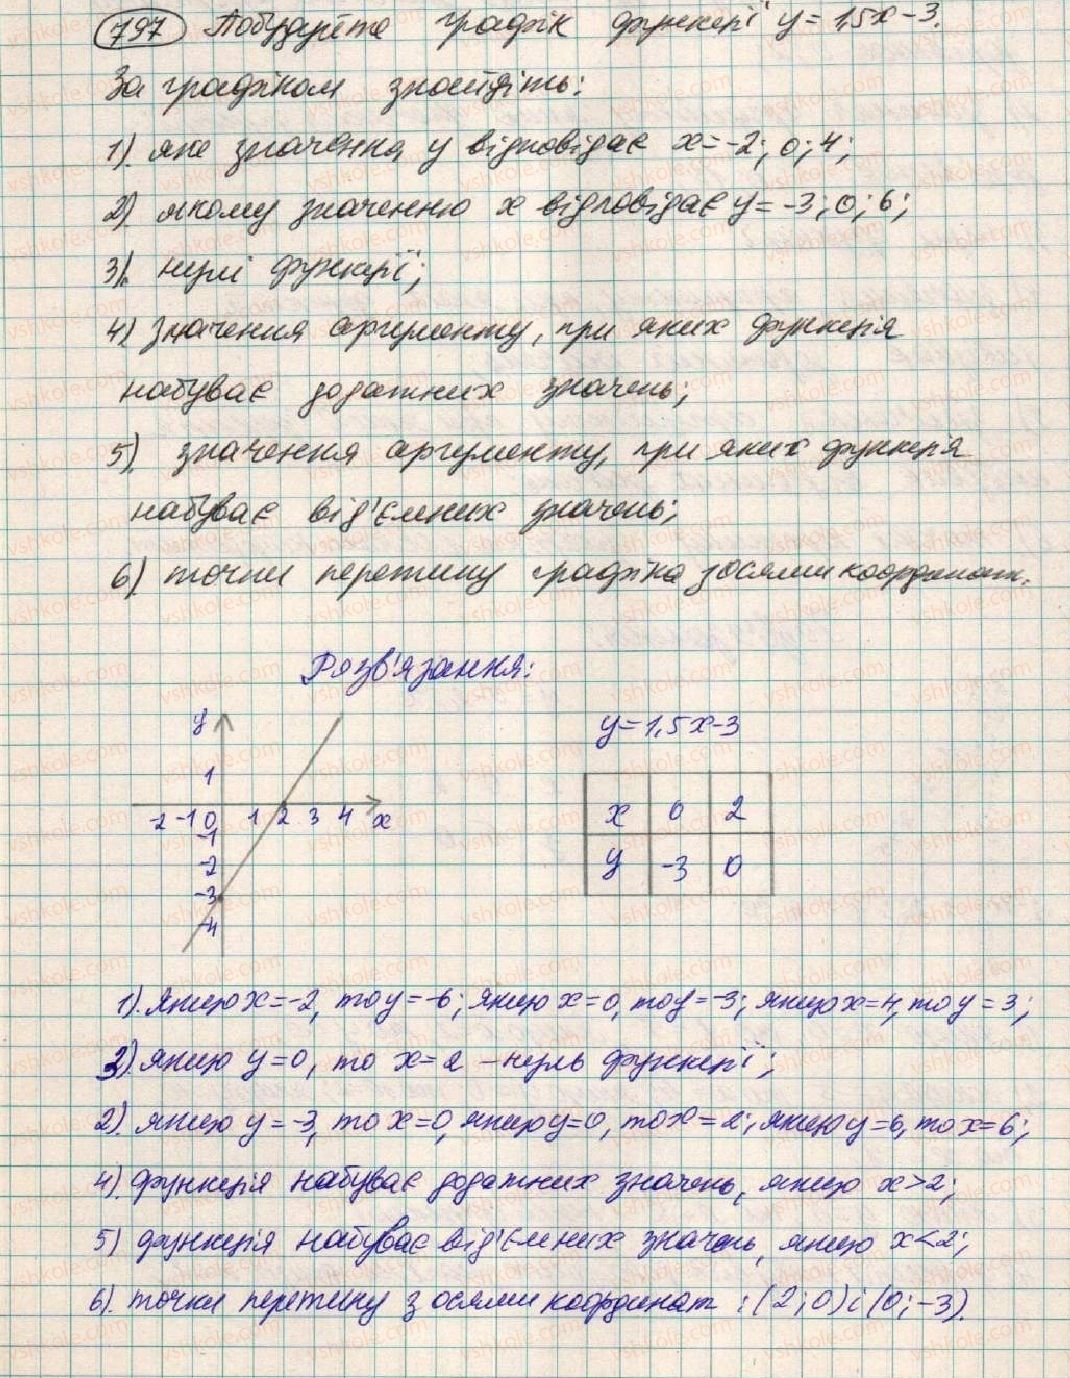 797 Побудуйте графік функції y = 1,5x - 3.
За графіком знайдіть:
1). яке значення y відповідає x = -2; 0; 4;
2). якому значенню x відповідає y = -3; 0; 6;
3). нулі функції;
4) значення аргументу, при яких функція
набуває додатних значень;
5). значення аргументу, при яких функція
набуває від'ємних значень;
6) точки перетину графіка з осями координат.
Розв'язання:
y
1
-2 -1 0 1 2 3 4 x
-1
-2
-3
-4
y = 1,5x-3
x 0 2
y -3 0
1). якщо x = -2, то y = -6; якщо x = 0, то y = -3; якщо x = 4, то y = 3;
3). якщо y = 0, то x = 2 - нуль функції;
2). якщо y = -3, то x = 0, якщо y = 0, то x = 2; якщо y = 6, то x = 6;
4). функція набуває додатних значень, якщо x > 2;
5) функція набуває від'ємних значень, якщо x < 2;
6). точки перетину з осями координат : (2; 0) і (0; -3).